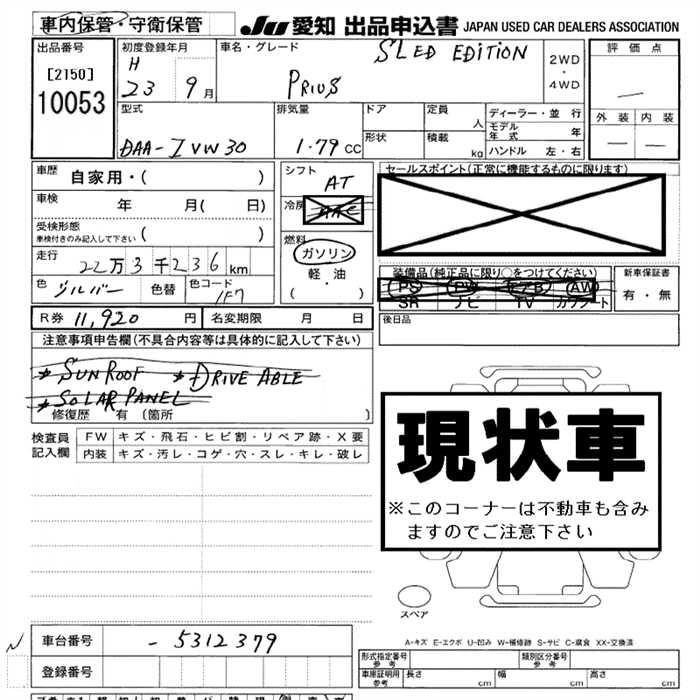 車内保管・守衛保管 JU 愛知 出品申込書 JAPAN USED CAR DEALERS ASSOCIATION
出品番号 [2150] 10053
初度登録年月 H 23 9月
車名・グレード PRIUS SLED EDITION
2WD・4WD
評価点 —
外装 — 内装 —
型式 DAA-ZVW30
排気量 1.79 CC
ドア 形状
定員 人 積載 kg
ディーラー・並行
モデル年式 年
ハンドル 左・右
車歴 自家用・( )
シフト AT
セールスポイント(正常に機能するものに限ります)
車検 年 月( 日)
冷房 AAC
受検形態 車検付きのみ記入して下さい ( )
燃料 ガソリン 軽・油 ( )
走行 22万3千236km
装備品(純正品に限り○をつけてください)
PS PW エアB AW
SR ナビ TV カワシート
新車保証書 有・無
色 シルバー 色替 色コード 1F7
R券 11,920円 名変期限 月 日
後日品
注意事項申告欄(不具合内容等は具体的に記入して下さい)
* SUNROOF * DRIVE ABLE
* SOLAR PANEL
修復歴 有 〔箇所 〕
検査員記入欄
FW キズ・飛石・ヒビ割・リペア跡・X要
内装 キズ・汚レ・コゲ・穴・スレ・キレ・破レ
現状車
※このコーナーは不動車も含み
ますのでご注意下さい
スペア
A-キズ E-エクボ U-凹み W-補修跡 S-サビ C-腐食 XX-交換済
N 車台番号 - 5312379
登録番号
型式指定番号 参考 類別区分番号 参考
車庫証明用 参考 長さ cm 幅 cm 高さ cm